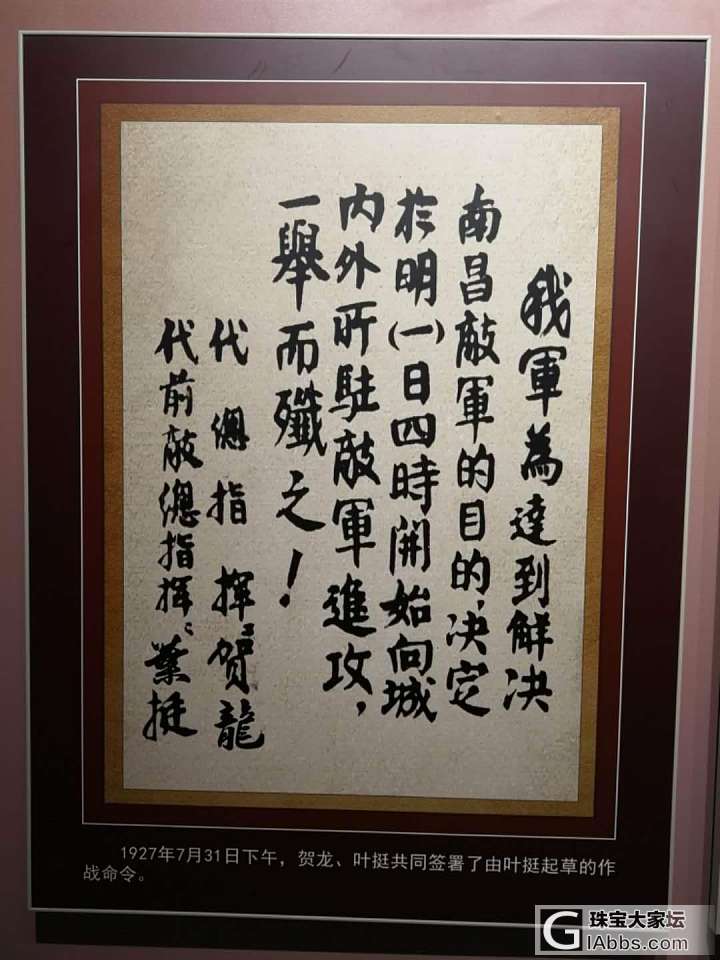 我軍為達到解决
南昌敵軍的目的,决定
於明(一)日四時開始向城
内外所駐敵軍進攻,
一舉而殲之!
代總指揮:賀龍
代前敵總指揮:葉挺
1927年7月31日下午，贺龙、叶挺共同签署了由叶挺起草的作
战命令。
珠宝大家坛
GIAbbs.com